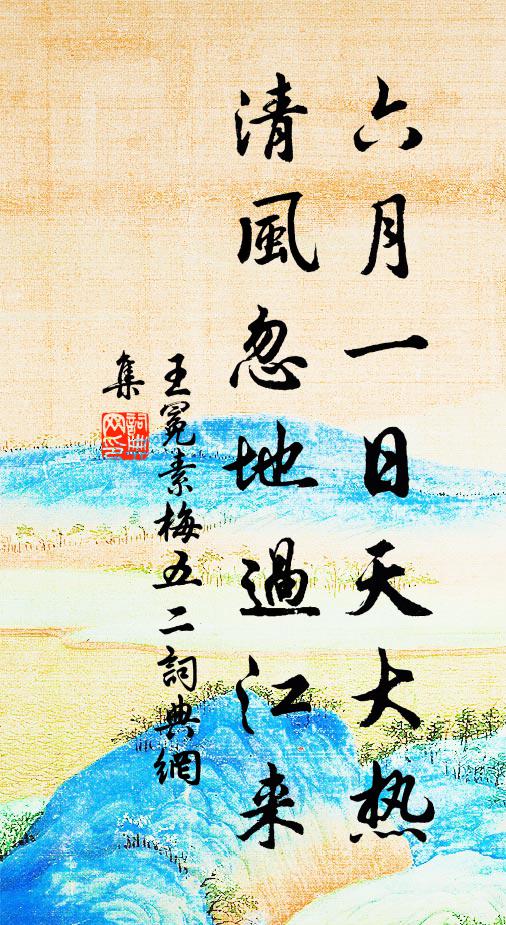 六月一日天大热
清風忽地過江来
王冕素梅五二詞典網
集
詞典网印